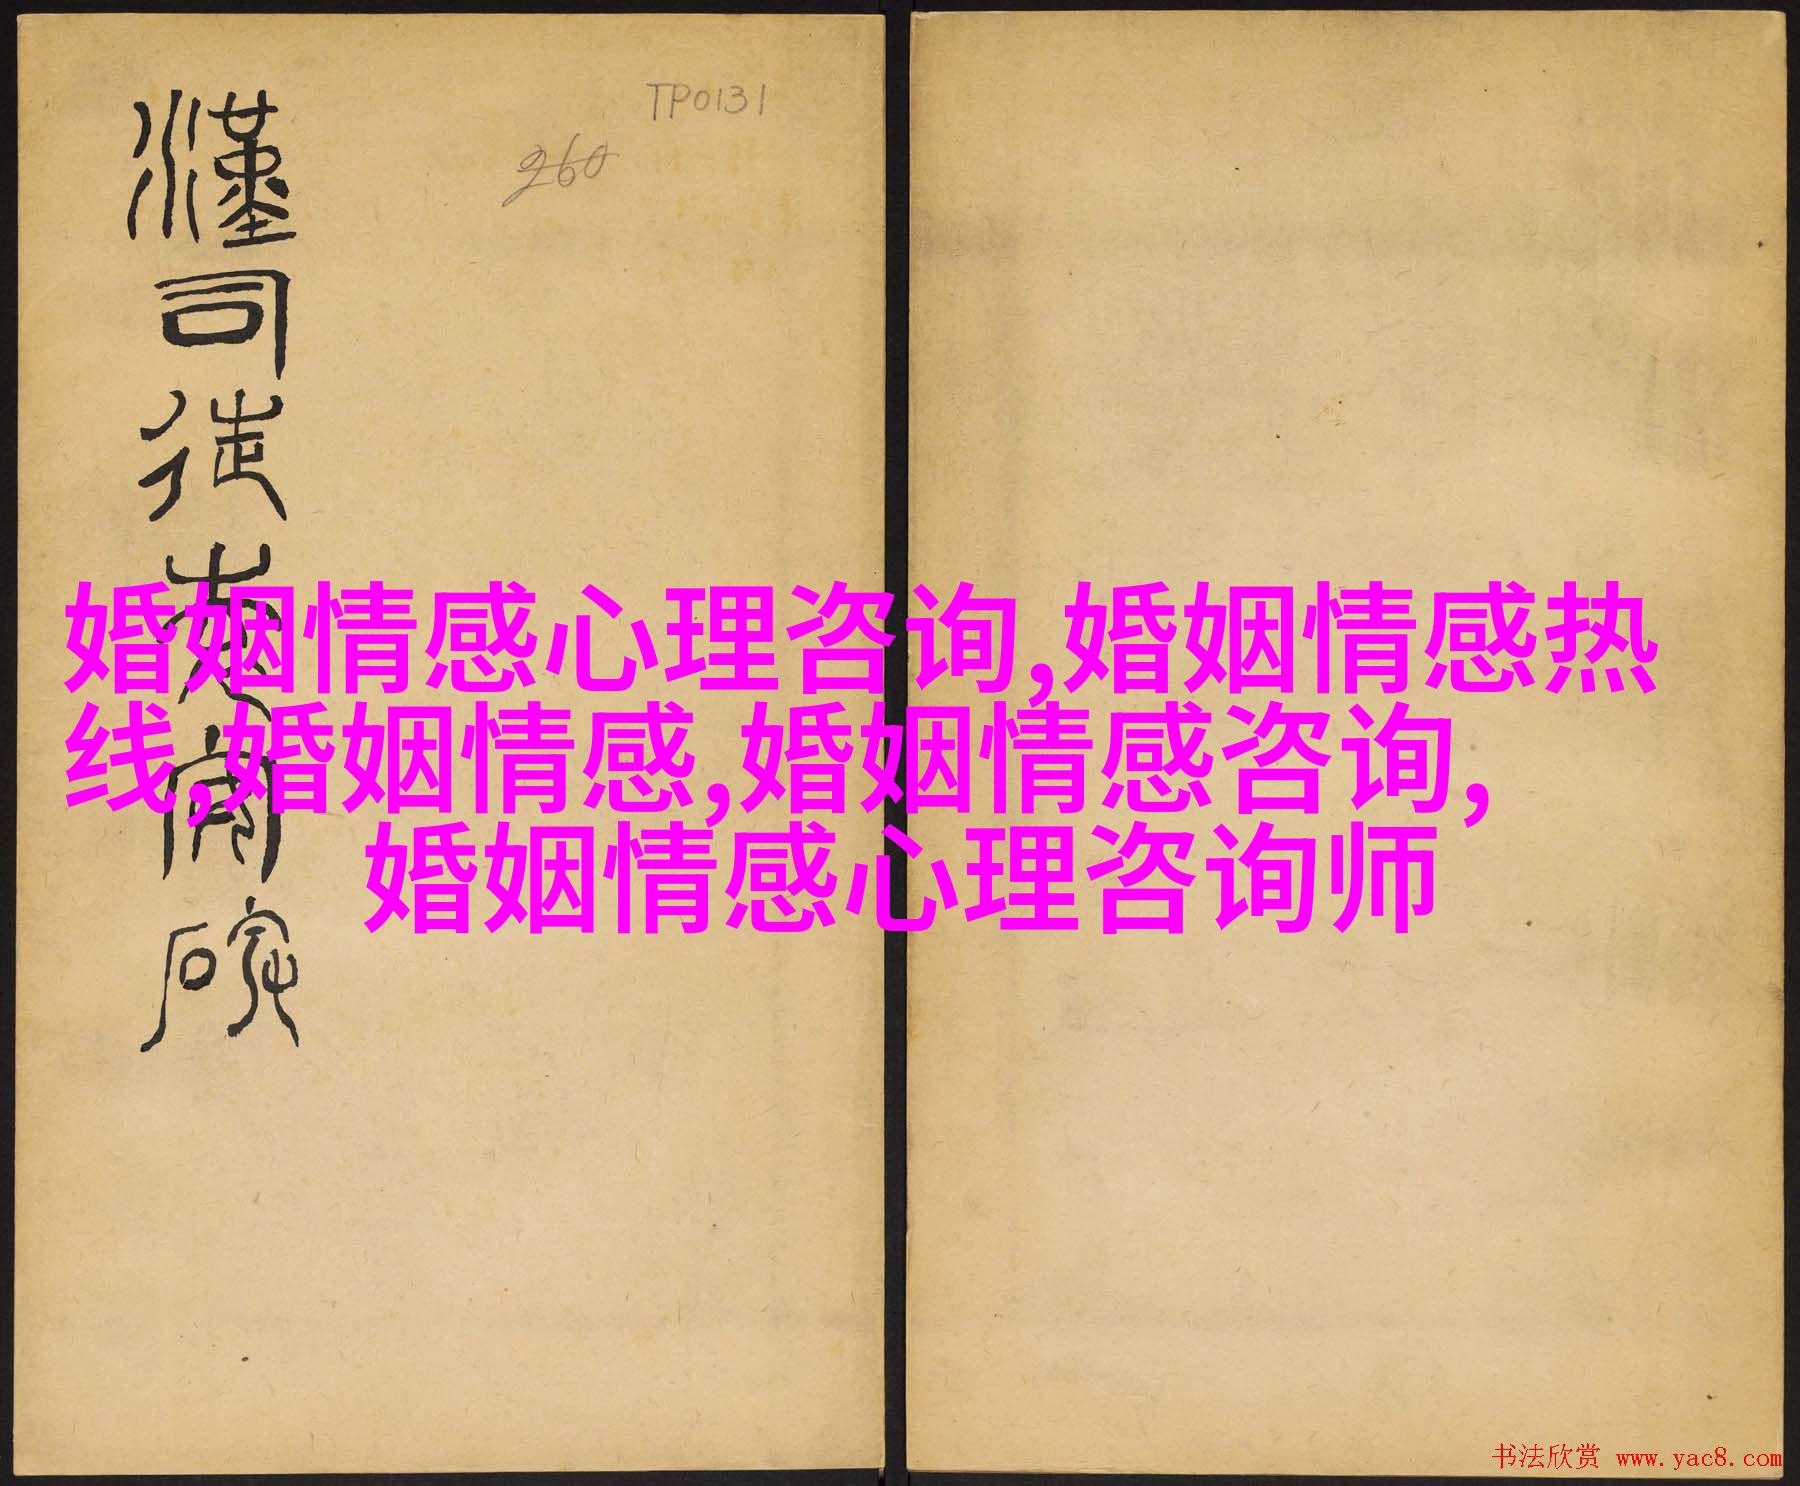 TP0131
260
漢司徒
婚姻情感心理咨询,婚姻情感热
线,婚姻情感,婚姻情感咨询,
婚姻情感心理咨询师
书法欣赏 www.yac8.com